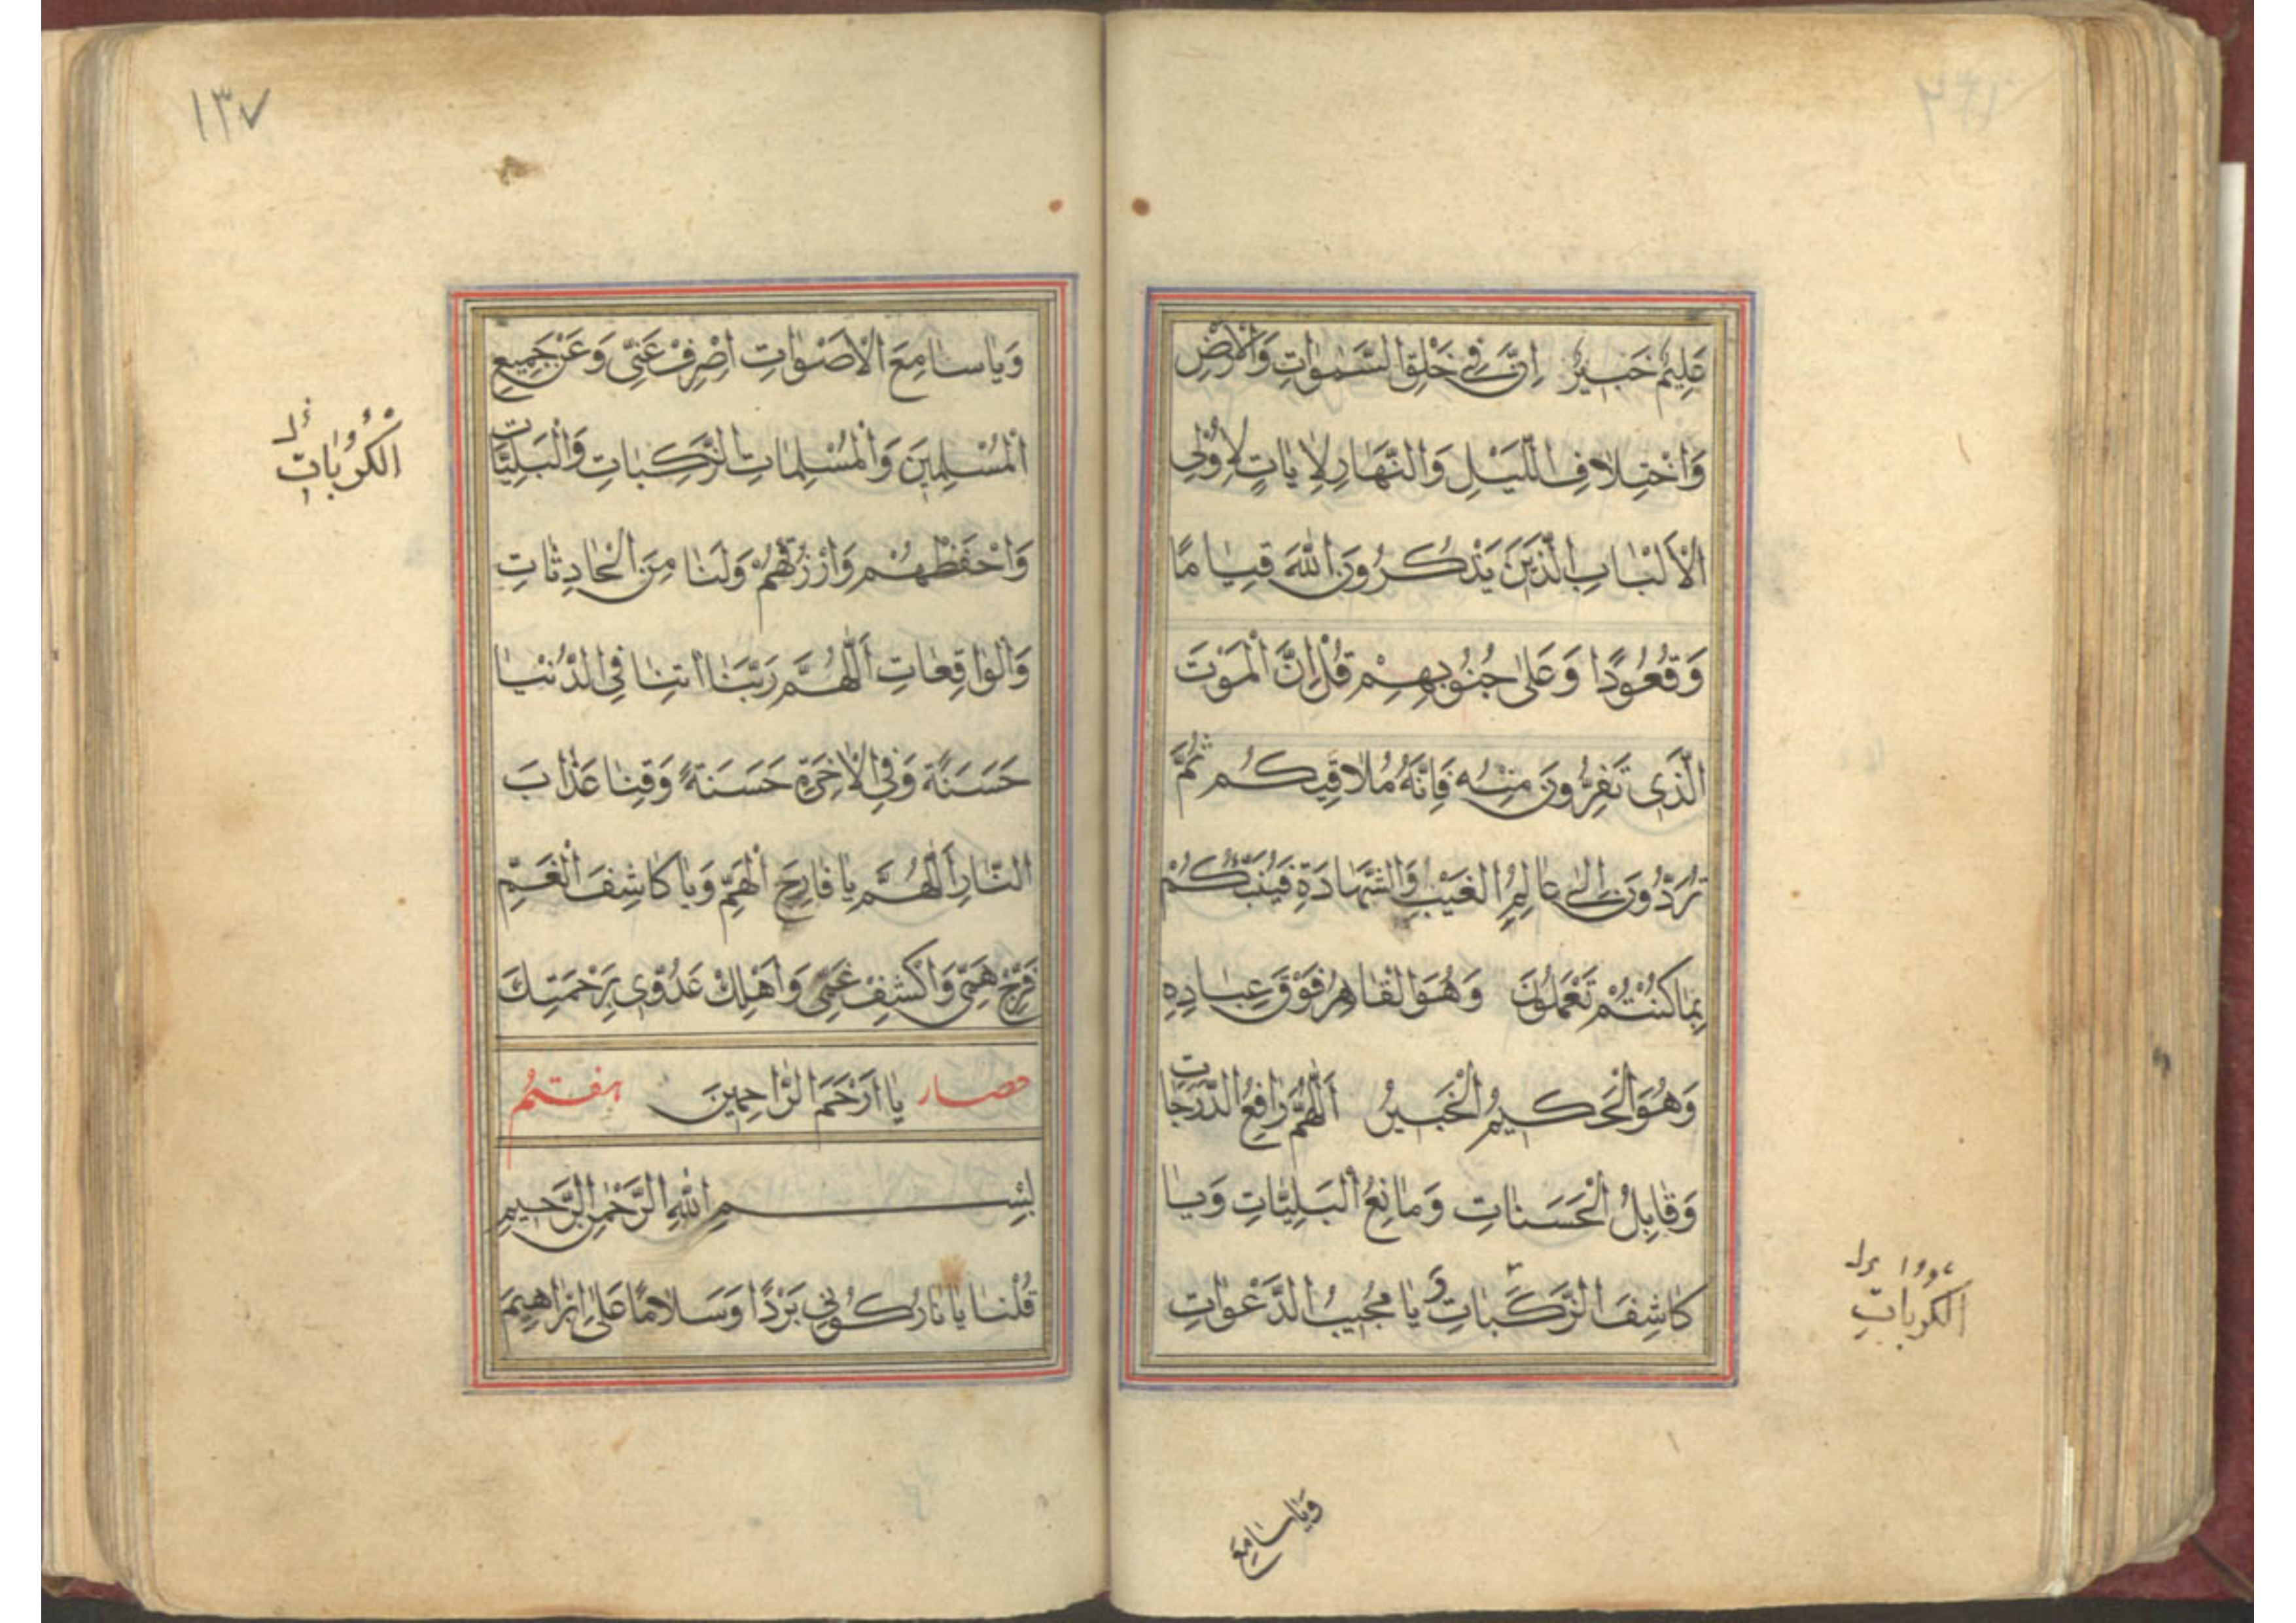 عَلِيمٌ خَبِيرٌ اِنَّ فِي خَلْقِ السَّمٰوَاتِ وَالْاَرْضِ
وَاخْتِلَافِ اللَّيْلِ وَالنَّهَارِ لَاٰيَاتٍ لِاُولِي
الْاَلْبَابِ الَّذِينَ يَذْكُرُونَ اللّٰهَ قِيَامًا
وَقُعُودًا وَعَلٰى جُنُوبِهِمْ قُلْ اِنَّ الْمَوْتَ
الَّذِي تَفِرُّونَ مِنْهُ فَاِنَّهُ مُلَاقِيكُمْ ثُمَّ
تُرَدُّونَ اِلٰى عَالِمِ الْغَيْبِ وَالشَّهَادَةِ فَيُنَبِّئُكُمْ
بِمَا كُنْتُمْ تَعْمَلُونَ وَهُوَ الْقَاهِرُ فَوْقَ عِبَادِهِ
وَهُوَ الْحَكِيمُ الْخَبِيرُ اَللّٰهُمَّ رَافِعُ الدَّرَجَاتِ
وَقَابِلُ الْحَسَنَاتِ وَمَانِعُ الْبَلِيَّاتِ وَيَا
كَاشِفَ الزَّكَبَاتِ وَيَا مُجِيبُ الدَّعْوَاتِ
الكربات
وَيَا سَامِعَ
١٣٧
وَيَا سَامِعَ الْاَصْوَاتِ اِصْرِفْ عَنِّي وَعَنْ جَمِيعِ
الْمُسْلِمِينَ وَالْمُسْلِمَاتِ الزَّكِبَاتِ وَالْبَلِيَّاتِ
الكربات
وَاحْفَظْهُمْ وَارْزُقْهُمْ وَلَنَا مِنَ الْحَادِثَاتِ
وَالْوَاقِعَاتِ اَللّٰهُمَّ رَبَّنَا اٰتِنَا فِي الدُّنْيَا
حَسَنَةً وَفِي الْاٰخِرَةِ حَسَنَةً وَقِنَا عَذَابَ
النَّارِ اَللّٰهُمَّ يَا فَارِجَ الْهَمِّ وَيَا كَاشِفَ الْغَمِّ
فَرِّجْ هَمِّي وَاكْشِفْ غَمِّي وَاَهْلِكْ عَدُوِّي بِرَحْمَتِكَ
حصار يَا اَرْحَمَ الرَّاحِمِينَ هفتم
بِسْمِ اللّٰهِ الرَّحْمٰنِ الرَّحِيمِ
قُلْنَا يَا نَارُ كُونِي بَرْدًا وَسَلَامًا عَلٰى اِبْرَاهِيمَ